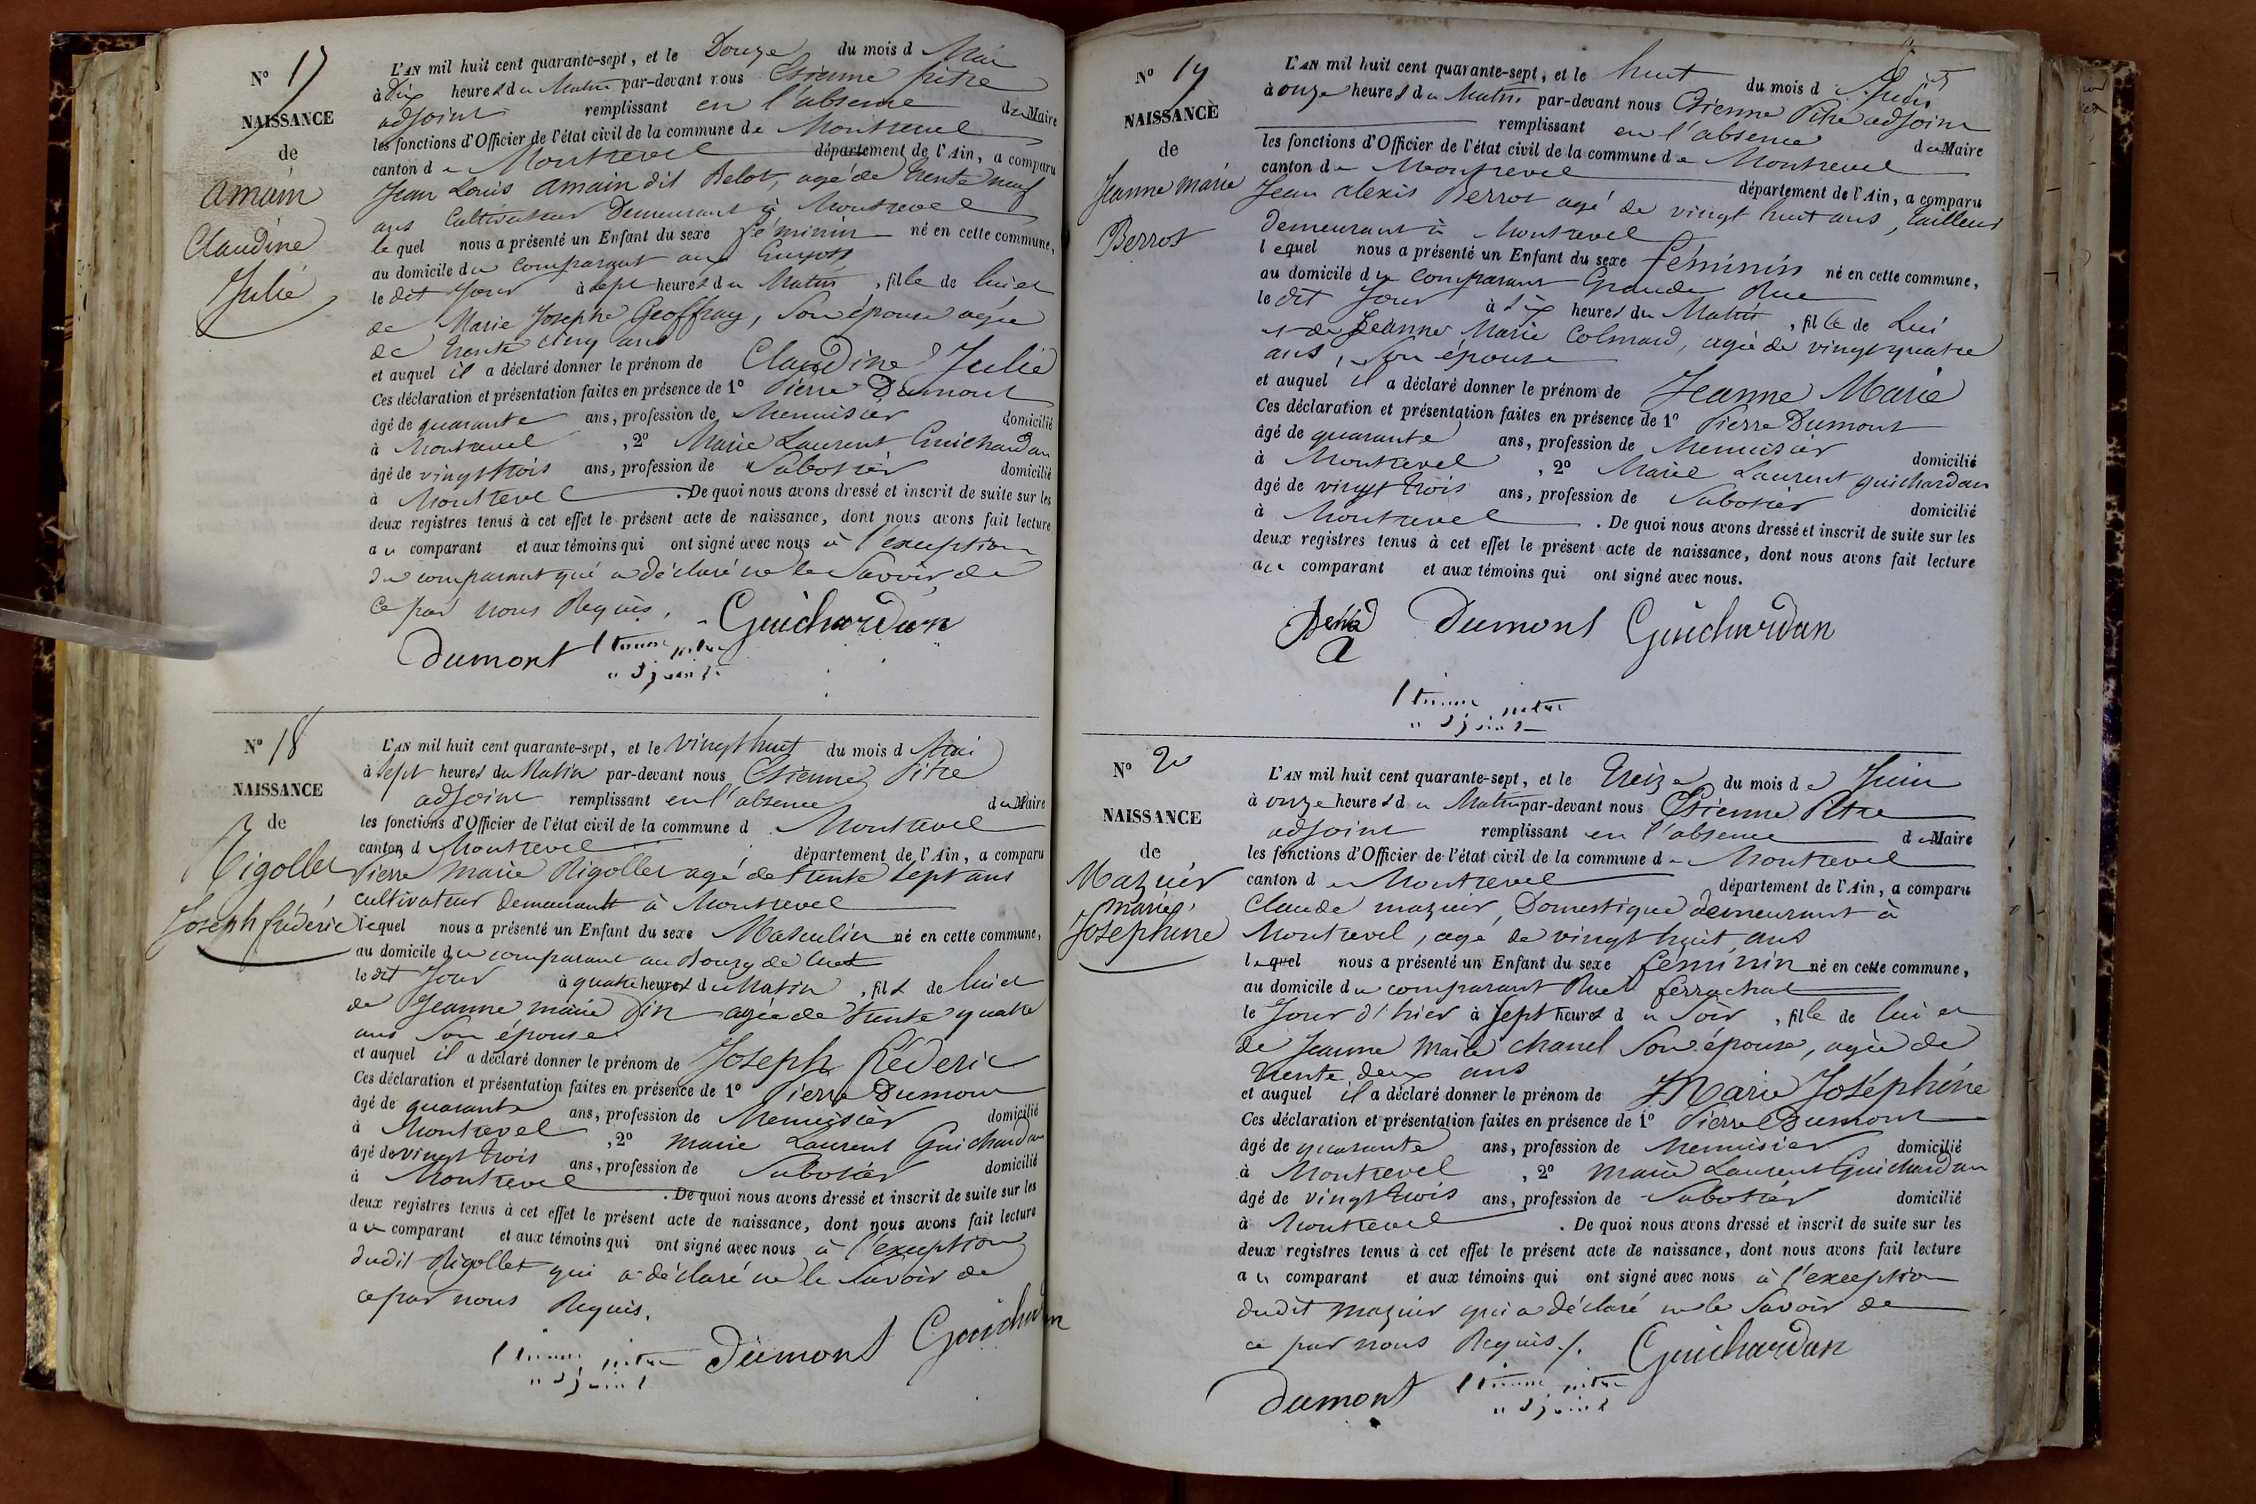 N° 17
NAISSANCE
de
Amain
Claudine
Julie
L'AN mil huit cent quarante-sept, et le Douze du mois d Mai
à Dix heures du Matin par-devant nous Etienne Pitre
adjoint remplissant en l'absence du Maire
les fonctions d'Officier de l'état civil de la commune de Montrevel
canton de Montrevel département de l'Ain, a comparu
Jean Louis Amain dit Belot, agé de trente neuf
ans Cultivateur Demeurant à Montrevel
lequel nous a présenté un Enfant du sexe féminin né en cette commune,
au domicile du comparant aux Guyots
le dit Jour à sept heures du Matin, fille de lui et
de Marie Josephe Geoffray, Son épouse agée
de trente cinq ans
et auquel il a déclaré donner le prénom de Claudine Julie
Ces déclaration et présentation faites en présence de 1° Pierre Dumont
âgé de quarante ans, profession de Menuisier domicilié
à Montrevel, 2° Marie Laurent Guichardan
âgé de vingt trois ans, profession de Sabotier domicilié
à Montrevel. De quoi nous avons dressé et inscrit de suite sur les
deux registres tenus à cet effet le présent acte de naissance, dont nous avons fait lecture
au comparant et aux témoins qui ont signé avec nous à l'exception
du comparant qui a déclaré ne le Savoir de
ce par nous Requis.
Guichardan
Dumont Etienne pitre
adjoint
N° 18
NAISSANCE
de
Rigollet
Joseph frédéric
L'AN mil huit cent quarante-sept, et le vingt huit du mois d Mai
à Sept heures du Matin par-devant nous Etienne Pitre
adjoint remplissant en l'absence du Maire
les fonctions d'Officier de l'état civil de la commune d Montrevel
canton d Montrevel département de l'Ain, a comparu
Pierre Marie Rigollet agé de trente sept ans
cultivateur demeurant à Montrevel
lequel nous a présenté un Enfant du sexe Masculin né en cette commune,
au domicile du comparant au Bourg de Cuet
le dit Jour à quatre heures du Matin, fils de lui et
de Jeanne marie Pin agée de trente quatre
ans Son épouse
et auquel il a déclaré donner le prénom de Joseph fréderic
Ces déclaration et présentation faites en présence de 1° Pierre Dumont
âgé de quarante ans, profession de Menuisier domicilié
à Montrevel, 2° marie Laurent Guichardan
âgé de vingt trois ans, profession de Sabotier domicilié
à Montrevel. De quoi nous avons dressé et inscrit de suite sur les
deux registres tenus à cet effet le présent acte de naissance, dont nous avons fait lecture
au comparant et aux témoins qui ont signé avec nous à l'exception
dudit Rigollet qui a déclaré ne le Savoir de
ce par nous Requis.
Etienne pitre Dumont Guichardan
adjoint
N° 19
NAISSANCE
de
Jeanne marie
Berrot
L'AN mil huit cent quarante-sept, et le huit du mois d Juin
à onze heures du Matin par-devant nous Etienne Pitre adjoint
remplissant en l'absence du Maire
les fonctions d'Officier de l'état civil de la commune de Montrevel
canton de Montrevel département de l'Ain, a comparu
Jean alexis Berrot agé de vingt huit ans, tailleur
demeurant à Montrevel
lequel nous a présenté un Enfant du sexe féminin né en cette commune,
au domicile du comparant Grande Rue
le dit Jour à six heures du Matin, fille de Lui
et de Jeanne Marie Colmard, agée de vingt quatre
ans, Son épouse
et auquel il a déclaré donner le prénom de Jeanne Marie
Ces déclaration et présentation faites en présence de 1° Pierre Dumont
âgé de quarante ans, profession de Menuisier domicilié
à Montrevel, 2° Marie Laurent guichardan
âgé de vingt trois ans, profession de Sabotier domicilié
à Montrevel. De quoi nous avons dressé et inscrit de suite sur les
deux registres tenus à cet effet le présent acte de naissance, dont nous avons fait lecture
au comparant et aux témoins qui ont signé avec nous.
Dumont Guichardan
Etienne pitre
adjoint
N° 20
NAISSANCE
de
Mazuir
marie
Joséphine
L'AN mil huit cent quarante-sept, et le treize du mois de Juin
à onze heures du Matin par-devant nous Etienne Pitre
adjoint remplissant en l'absence du Maire
les fonctions d'Officier de l'état civil de la commune de Montrevel
canton de Montrevel département de l'Ain, a comparu
Claude mazuir, Domestique demeurant à
Montrevel, agé de vingt huit ans
lequel nous a présenté un Enfant du sexe féminin né en cette commune,
au domicile du comparant Rue ferrachat
le Jour d'hier à Sept heures du Soir, fille de lui et
de Jeanne Marie chanel Son épouse, agée de
trente deux ans
et auquel il a déclaré donner le prénom de Marie Joséphine
Ces déclaration et présentation faites en présence de 1° Pierre Dumont
âgé de quarante ans, profession de Menuisier domicilié
à Montrevel, 2° Marie Laurent Guichardan
âgé de vingt trois ans, profession de Sabotier domicilié
à Montrevel. De quoi nous avons dressé et inscrit de suite sur les
deux registres tenus à cet effet le présent acte de naissance, dont nous avons fait lecture
au comparant et aux témoins qui ont signé avec nous à l'exception
dudit mazuir qui a déclaré ne le Savoir de
ce par nous Requis /.
Guichardan
Dumont Etienne pitre
adjoint